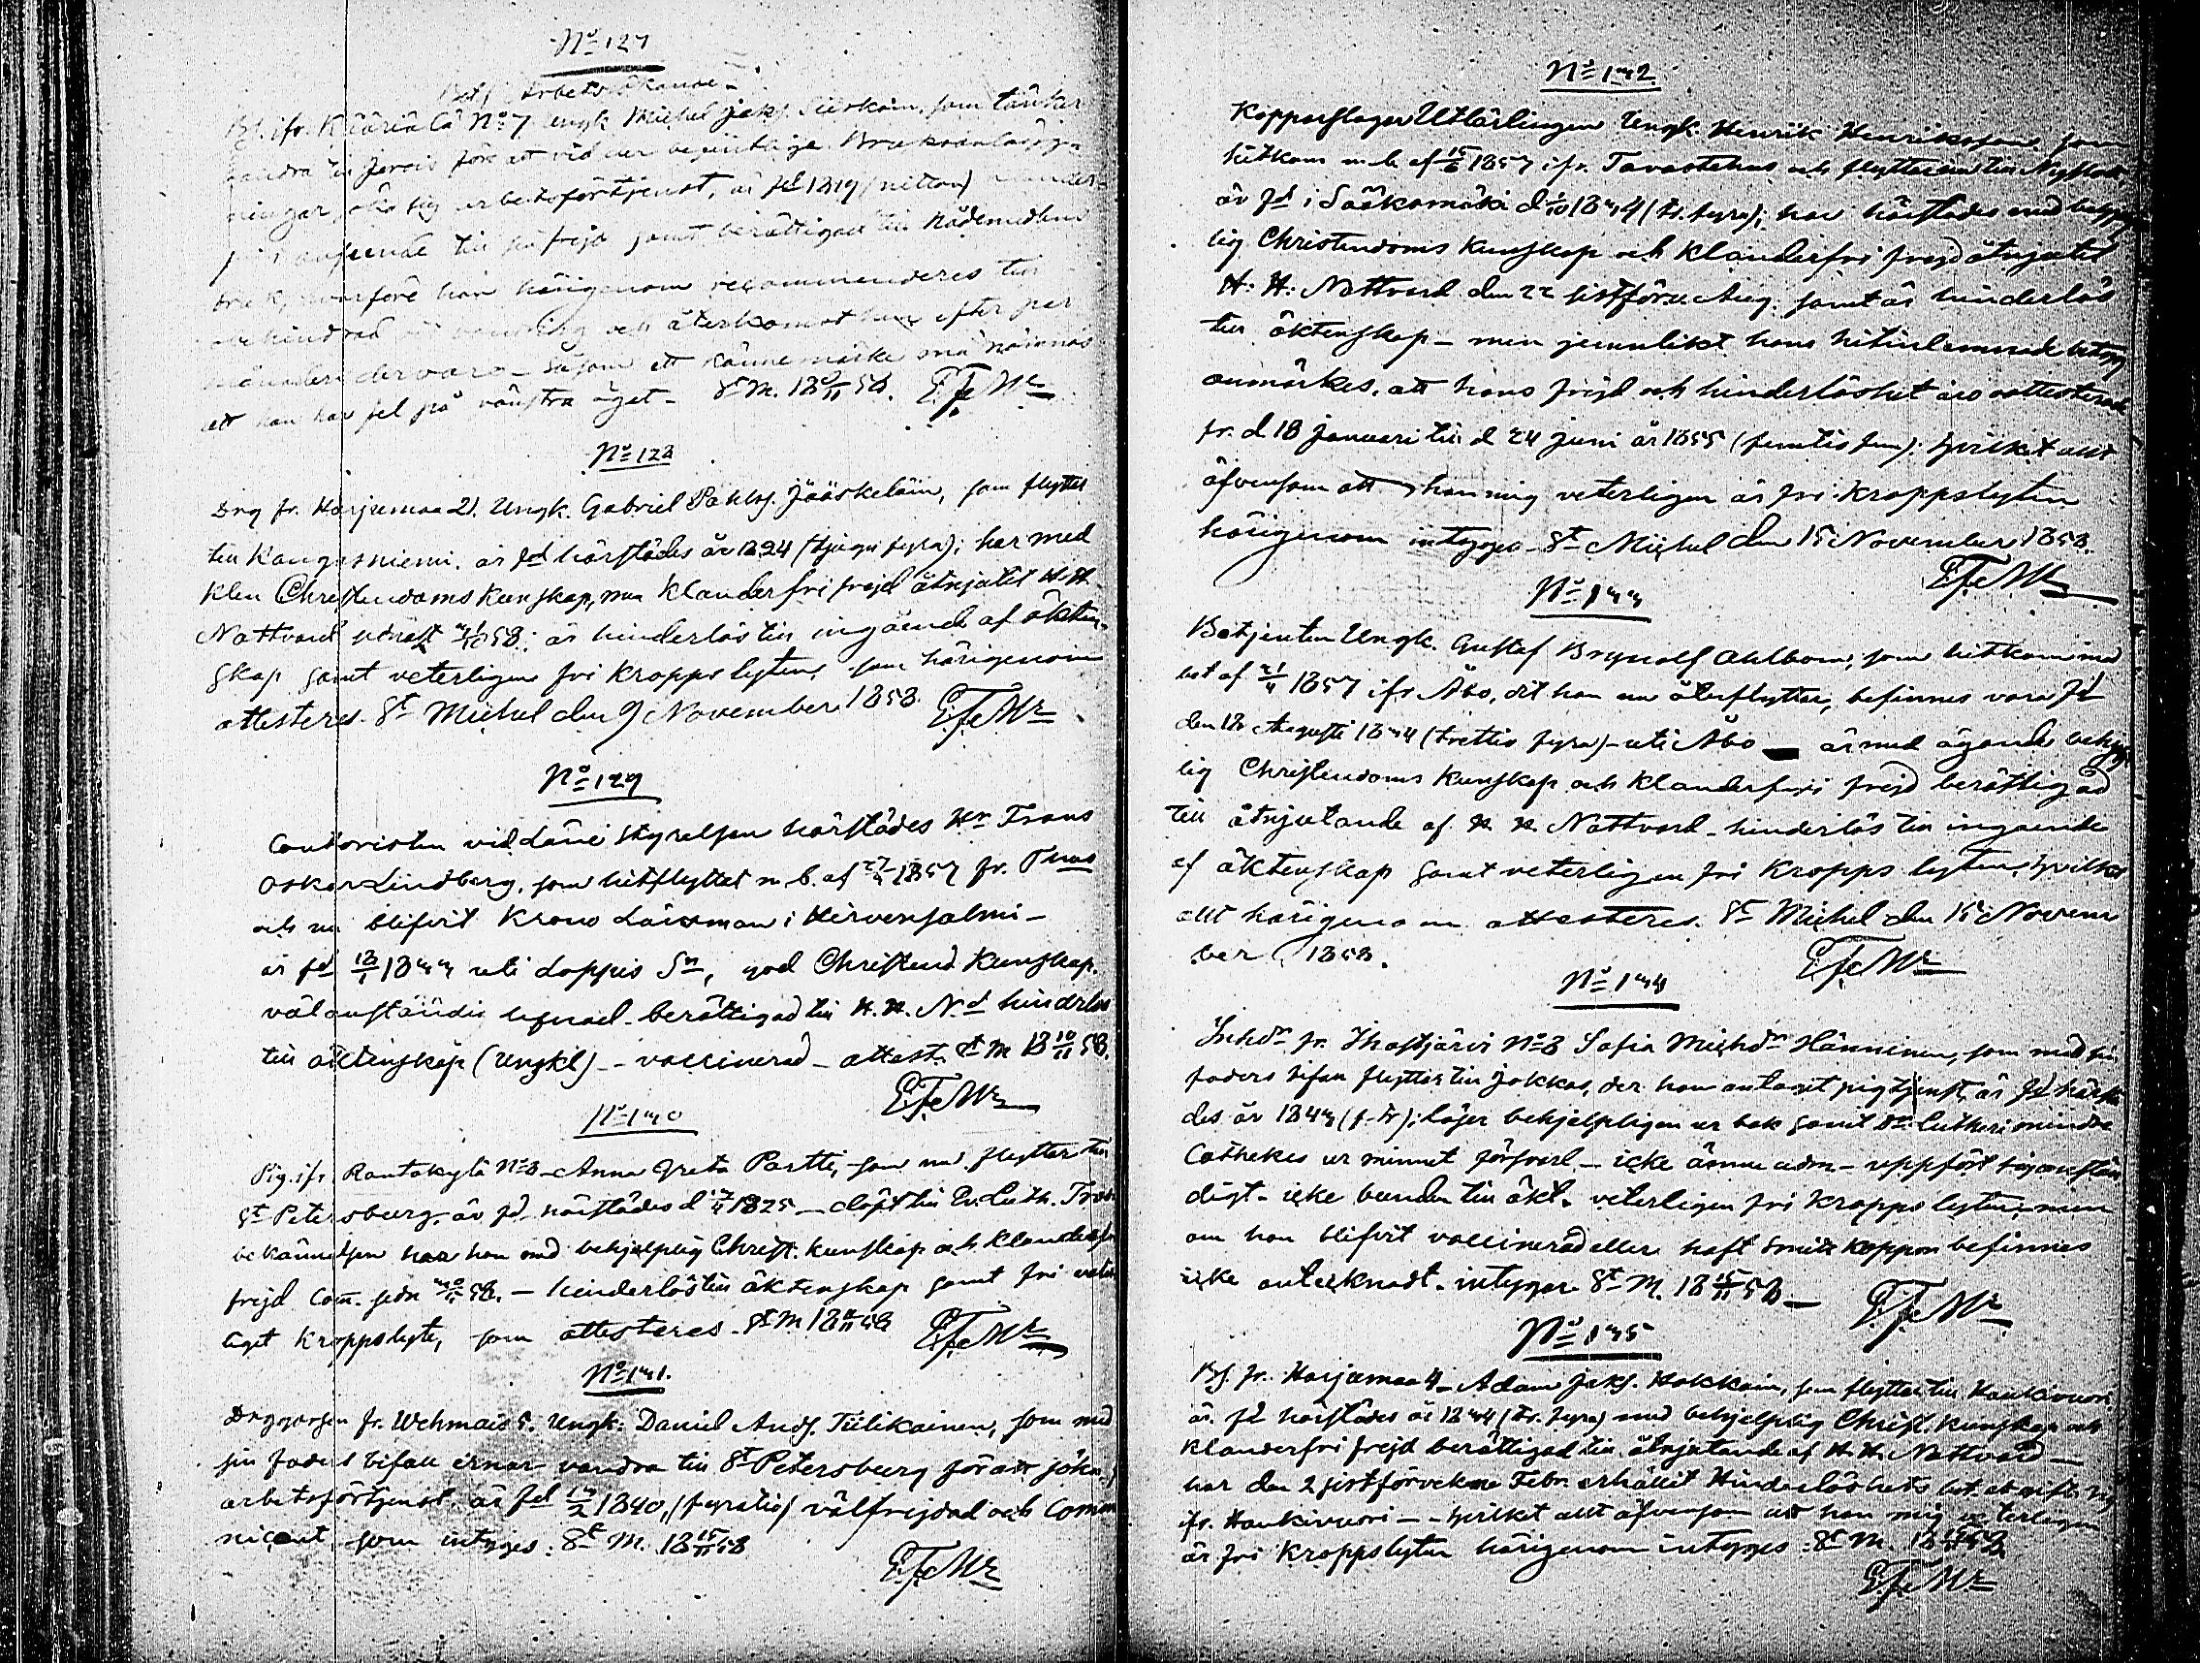 No 137
Bet. f. Arbetssökande
Bs. ifr. Kääriälä No 7 Ungk. Michel Jaks. som tänker
vandra till för att vid der befintliga
söka sig arbetsförtjenst, är fd 1819 (nitton)
anseende till sin frejd samt berättigad till Nådemedlens
bruk, hvarföre han härigenom recommenderes till
obehindrad och återkomst efter par
månader dervaro – Såsom ett kännemärke må nämnas
att han har fel på vänstra ögat – St M. 18 9/11 58. EfeMr
No 138
Drg fr. Harjumaa 2. Ungk. Gabriel Påhls. Jääskeläin, som flyttar
till Kangasniemi, är fd härstädes år 1824 (tjugu fyra); har med
klen Christendoms kunskap, men klanderfri frejd åtnjutit H. H.
Nattvard sednast 31/10 58; är hinderlös till ingående af äkten-
skap samt veterligen fri kropps lyten, som härigenom
attesteres. St Michel den 9 November 1858. EfeMr
No 139
Contoristen vid Läne styrelsen härstädes Hr Frans
Oskar Lindberg, som hitflyttat m. b. af 1857 fr.
och nu blifvit Krono Länsman i Hirvensalmi –
är fd 18/7 1833 uti Loppis Sn, god Christend. Kunskap.
välanständig lefnad – berättigad till H. H. N.d hinderlös
till äktenskap (Ungkl) – vaccinerad – attest. St M 18 10/11 58.
EfeMr
No 140
Pig. ifr. Rantakylä No 8 – Anna Greta Partti, som nu flyttar till
St Petersburg, är fd härstädes d 1825 – döpt till Ev. Luth. Tros
bekännelsen har hon med behjelplig Christ. kunskap och klanderfri
frejd Com. sedn 58. – hinderlös till äktenskap samt fri
kroppslyte, som attesteres. St M 18 58 EfeMr
No 141.
Drggossen fr. Wehmais 5. Ungk: Daniel Ands. Tiilikainen, som med
sin faders bifall ärnar vandra till St Petersburg för att söka
arbetsförtjenst, är fd 1840, (fyratio) välfrejdad och Comm
nicant, som intyges: St M. 18 15/11 58
EfeMr
No 142
Kopparslagar Utlärlingen Ungk. Henrik Henriksson, som
hitkom m. b. af 15/6 1857 ifr. Tavastehus och flyttar nu till Nyslott,
är fd i Sääksmäki d 1834 (tr. fyra); har härstädes med behjelp
lig Christendoms kunskap och klanderfri frejd åtnjutit
H. H. Nattvard den 22 sistförv. Aug. samt är hinderlös
till äktenskap – men jemnlikt hans hitinlemnade betyg
anmärkes, att hans frejd och hinderlöshet äro oattesterade
fr. d 18 Januari till d 24 Juni år 1855 (femtio fem): hvilket allt
äfvensom att han mig veterligen är fri kroppslyten
härigenom intyges – St Michel den 15 November 1858.
EfeMr
No 143
Betjenten Ungk. Gustaf Brynolf Ahlbom, som hitkom med
bet af 21/4 1857 ifr Åbo, dit han nu återflyttar, befinnes vara fd
den Augusti 1834 (trettio fyra) – uti Åbo är med ägande behjelp
lig Christendoms kunskap och klanderfri frejd berättigad
till åtnjutande af H. H. Nattvard – hinderlös till ingående
af äktenskap samt veterligen fri kropps lyten, hvilket
allt härigenom attesteres. St Michel den 15 Novem
ber 1858.
EfeMr
No 144
Inhdr fr. Ihastjärvi No 8 Sofia Michdr Hänninen, som med sin
faders bifall flyttar till Jokkas, der hon antagit pigtjenst, är fd härstä
des år 1843 (f. tr); läser behjelpligen ur bok samt Dr Lutheri mindre
Cathekes ur minnet försvarl – icke ännu adm – uppfört sig anstän
digt – icke bunden till äkt. veterligen fri kropps lyten; men
om hon blifvit vaccinerad eller haft Smitt koppor befinnes
icke antecknadt. intygar St M. 18 15/11 58 –
EfeMr
No 145
Bs. fr. Harjumaa 4 – Adam Jaks. Hokkain, som flyttar till Haukivuori
är fd härstädes år 1834 (tr. fyra) med behjelplig Christ. kunskap och
klanderfri frejd berättigad till åtnjutande af H. H. Nattvard –
har den 2 sistförvekne Febr. erhållit Hinderlöshets bet. att gifta sig
ifr. Haukivuori – hvilket allt äfvensom att han mig veterligen
är fri kroppslyten härigenom intyges: St M. 18 58
EfeMr